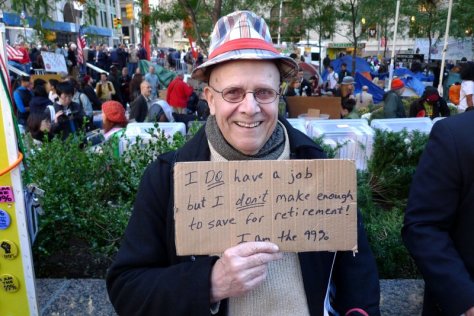 I DO have a job
but I don't make enough
to save for retirement!
I am the 99%